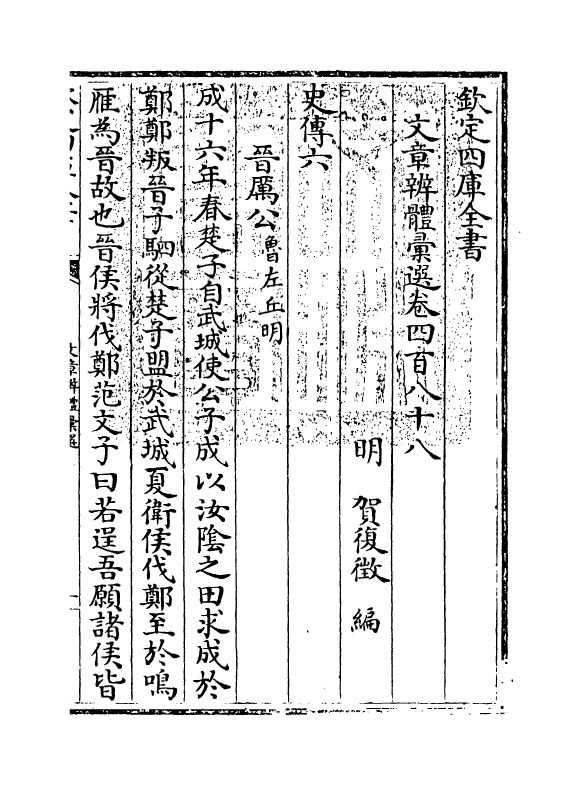 欽定四庫全書
文章辨體彙選卷四百八十八
明 賀復徵 編
史傳六
晉厲公魯左丘明
成十六年春楚子自武城使公子成以汝隂之田求成於
鄭鄭叛晉子駟從楚子盟於武城夏衛侯伐鄭至於鳴
雁為晉故也晉侯將伐鄭范文子曰若逞吾願諸侯皆